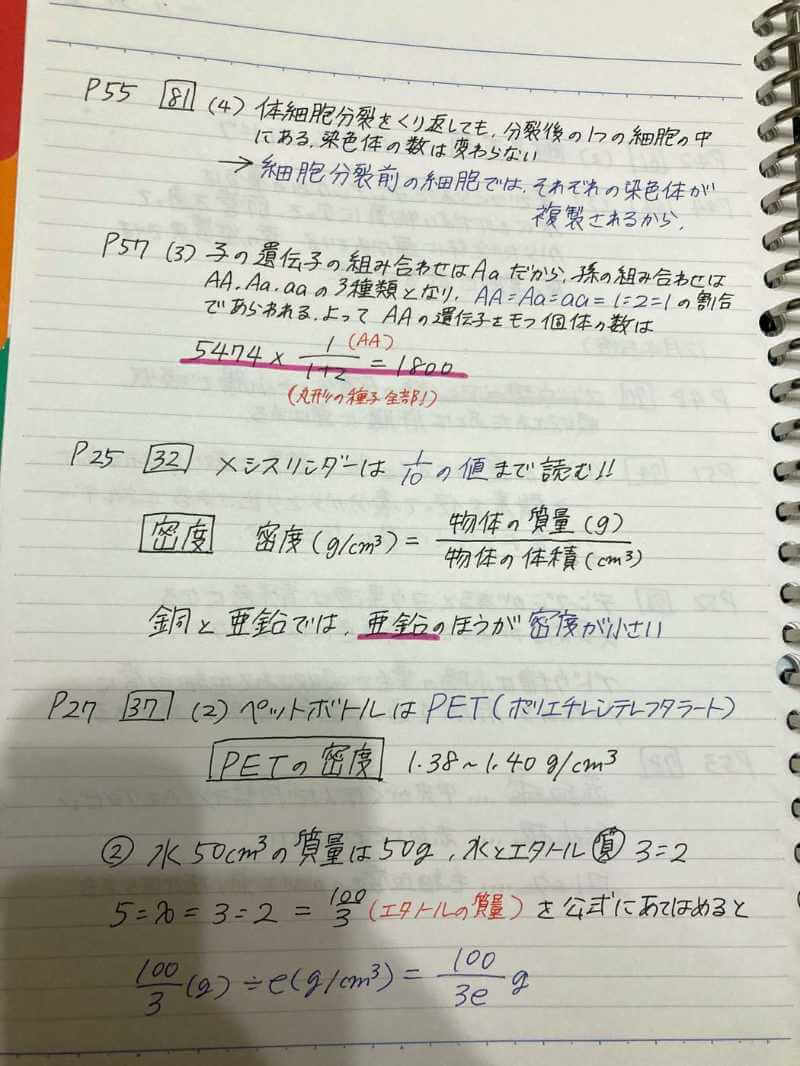 P55 81 (4) 体細胞分裂をくり返しても、分裂後の1つの細胞の中
にある、染色体の数は変わらない
→細胞分裂前の細胞では、それぞれの染色体が
複製されるから、
P57 (3) 子の遺伝子の組み合わせはAaだから、孫の組み合わせは
AA、Aa、aaの3種類となり、AA=Aa=aa=1=2=1の割合
であらわれる、よってAAの遺伝子をモつ個体の数は
5474 × 1/1+2 = 1800
(AA)
(丸形の種子全部!)
P25 32 メシスリンダーは 1/10 の値まで読む!!
密度 密度(g/cm³) = 物体の質量(g)/物体の体積(cm³)
銅と亜鉛では、亜鉛のほうが密度が小さい
P27 37 (2) ペットボトルはPET(ポリエチレンテレフタラート)
PETの密度 1.38~1.40 g/cm³
② 水50cm³の質量は50g、水とエタトル質 3=2
5=x=3=2 = 100/3 (エタトルの質量)を公式にあてはめると
100/3 (g) ÷ e(g/cm³) = 100/3e g